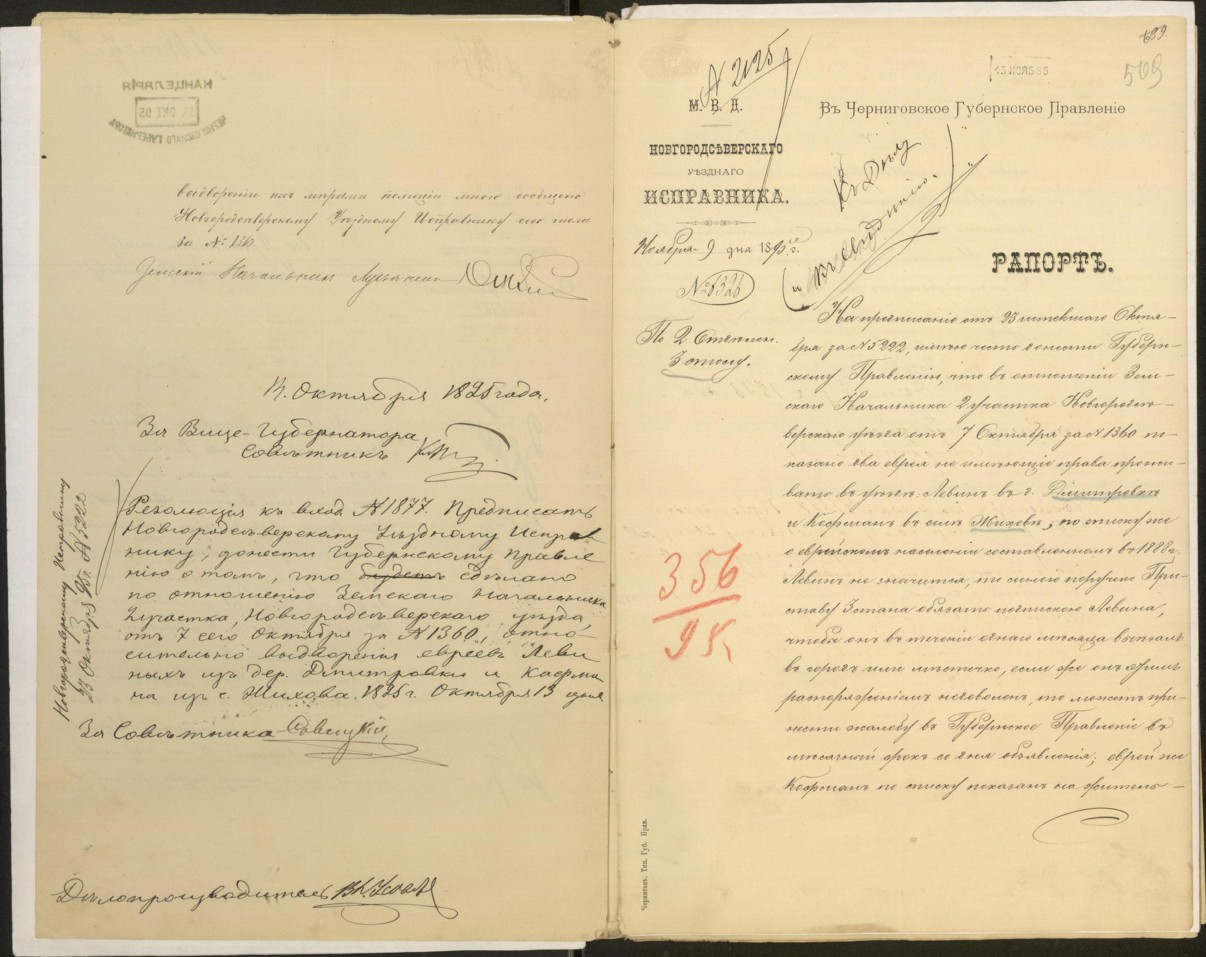 выдворении ихъ мѣрами полиціи мною сообщено
Новгородсѣверскому Уѣздному Исправнику сего числа
за №
Земскій Начальникъ
Октября 1895 года.
За Вице-Губернатора
Совѣтникъ
Резолюція къ вход. № 1877. Предписать
Новгородсѣверскому Уѣздному Исправ
нику, донести Губернскому Правле
нію о томъ, что будетъ сдѣлано
по отношенію Земскаго Начальника
2 участка, Новгородсѣверскаго уѣзда,
отъ 7 сего Октября за № 1360, относ-
сительно выдворенія евреевъ Леви
ныхъ изъ дер. Дмитровки и Кафма
на изъ с. Жихова. 1895 г. Октября 13 дня
За Совѣтника
Новгородсѣверскому Исправнику
23 Октября 95 г. № 5222
Дѣлопроизводитель
КАНЦЕЛЯРІЯ
ОКТ 95
ЧЕРНИГОВСКАГО ГУБЕРНАТОРА
689.
509
13 НОЯБ 95
№ 2125
М. В. Д.
НОВГОРОДСѢВЕРСКАГО
УѢЗДНАГО
ИСПРАВНИКА.
Ноября 9 дня 1895 г.
№ 1326
По 2 Отдѣлен.
3 столу.
Въ Черниговское Губернское Правленіе
Къ Дѣлу
РАПОРТЪ.
На предписаніе отъ 23 истекшаго Октя-
бря за № 5222, имѣю честь донести Губерн-
скому Правленію, что въ отношеніи Зем-
скаго Начальника 2 участка Новгородсѣ-
верскаго уѣзда отъ 7 Октября за № 1360 по-
казано два еврея не имѣющіе права прожи-
вать въ уѣздѣ: Левинъ въ д. Дмитровкѣ
и Кофманъ въ селѣ Жиховѣ; по списку же
о еврейскомъ населеніи составленномъ въ 188 г.
Левинъ не значится, то мною поручено При-
ставу 3 стана обязать подпискою Левина,
чтобы онъ въ теченіи одного мѣсяца выѣхалъ
въ городъ или мѣстечко, если же онъ симъ
распоряженіемъ недоволенъ, то можетъ при-
нести жалобу въ Губернское Правленіе въ
мѣсячный срокъ со дня объявленія; еврей же
Кофманъ по списку показанъ на житель-
356
95.
Черниговъ. Тип. Губ. Прав.